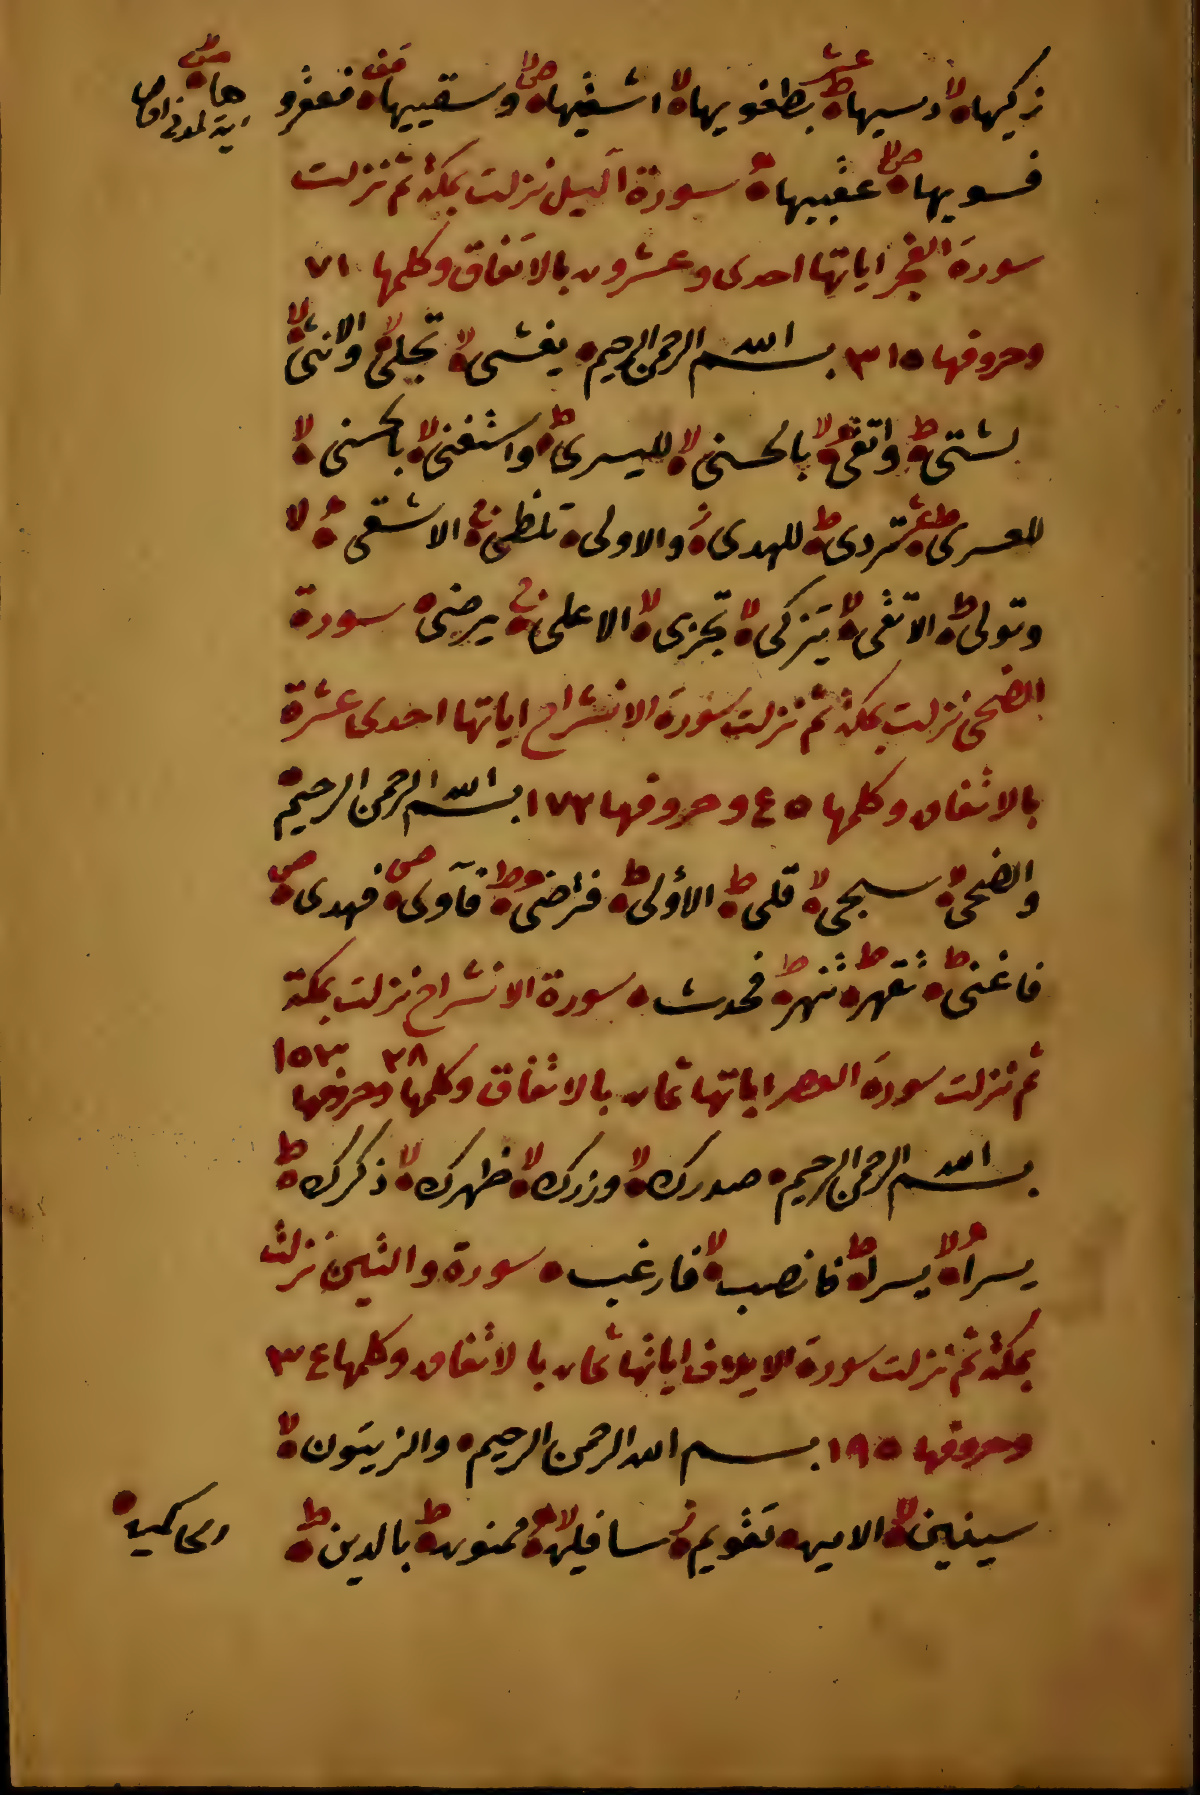 زكيها لا دسيها ط عشر بطغويها لا اشقيها صلا وسقييها قف فعقرو
ها صلى
فسويها صلا عقبيها سورة اليل نزلت بمكة ثم نزلت
سورة الفجر اياتها احدى وعشرون بالاتفاق وكلمها ٧١
وحروفها ٣١٥ بسم الله الرحمن الرحيم يغشى لا تجلى لا والانثى لا
لشتى ط واتقى لا بالحسنى لا لليسرى ط واستغنى لا بالحسنى لا
للعسرى ط عشر تردى ط للهدى ز والاولى تلظى ج الاشقى لا
وتولى ط الاتقى لا يتزكى لا تجزى لا الاعلى ج يرضى سورة
الضحى نزلت بمكة ثم نزلت سورة الانشراح اياتها احدى عشرة
بالاتفاق وكلمها ٤٥ وحروفها ١٧٢ بسم الله الرحمن الرحيم
والضحى لا سجى لا قلى ط الأولى ط فترضى ط فآوى ص فهدى ص
فاغنى ط تقهر ط تنهر ط فحدث سورة الانشراح نزلت بمكة
ثم نزلت سورة العصر اياتها ثمان بالاتفاق وكلمها ٢٨ وحروفها ١٥٣
بسم الله الرحمن الرحيم صدرك لا وزرك لا ظهرك لا ذكرك ط
يسرا لا يسرا ط فانصب لا فارغب سورة والتين نزلت
بمكة ثم نزلت سورة الايلاف اياتها ثمان بالاتفاق وكلمها ٣٤
وحروفها ١٩٥ بسم الله الرحمن الرحيم والزيتون لا
سينين لا الامين تقويم ز سافلين لا ممنون ط بالدين ط
الحاكمين